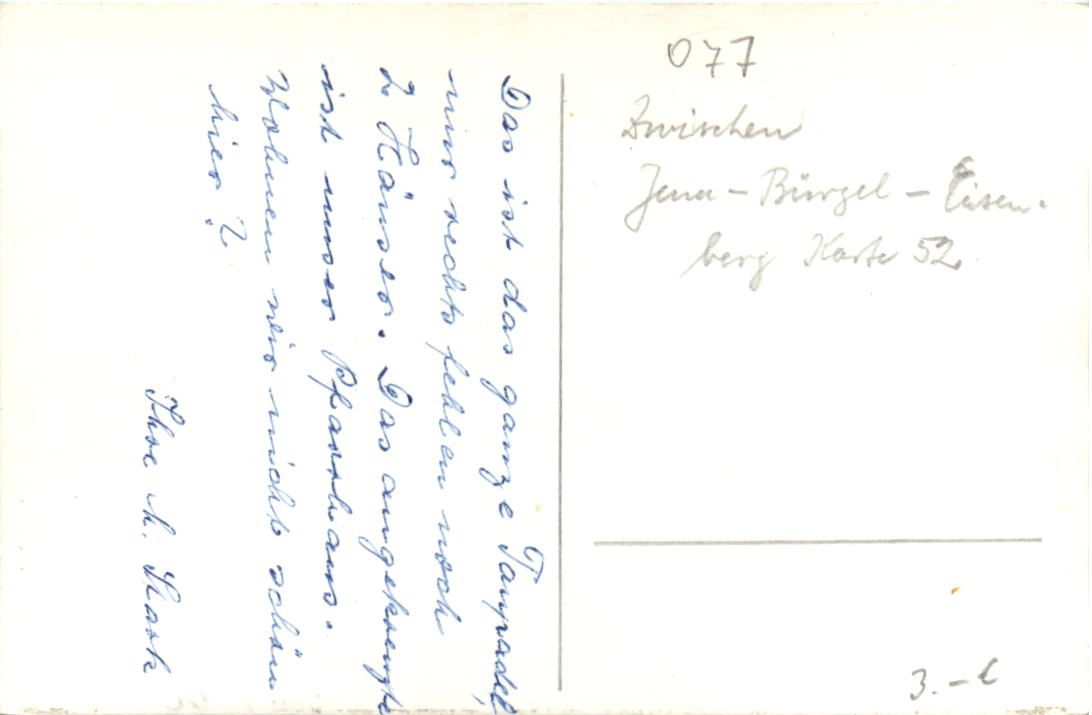 Das ist das ganze Taupadel,
nur rechts fehlen noch
2 Häuser. Das angekreuzte
ist unser Pfarrhaus.
Wohnen wir nicht schön
hier?
Ihre h. Stark
077
Zwischen
Jena - Bürgel - Eisen-
berg Karte 52
3.-